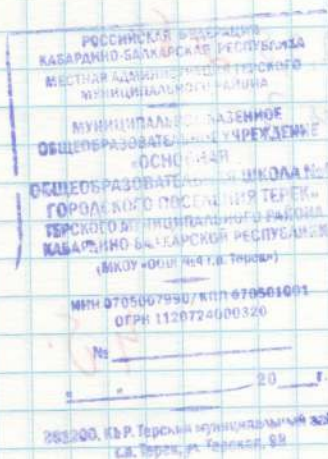 РОССИЙСКАЯ ФЕДЕРАЦИЯ
КАБАРДИНО-БАЛКАРСКАЯ РЕСПУБЛИКА
МЕСТНАЯ АДМИНИСТРАЦИЯ ТЕРСКОГО
МУНИЦИПАЛЬНОГО РАЙОНА
МУНИЦИПАЛЬНОЕ КАЗЕННОЕ
ОБЩЕОБРАЗОВАТЕЛЬНОЕ УЧРЕЖДЕНИЕ
«ОСНОВНАЯ
ОБЩЕОБРАЗОВАТЕЛЬНАЯ ШКОЛА
ГОРОДСКОГО ПОСЕЛЕНИЯ ТЕРЕК»
ТЕРСКОГО МУНИЦИПАЛЬНОГО РАЙОНА
КАБАРДИНО-БАЛКАРСКОЙ РЕСПУБЛИКИ
(МКОУ «ООШ №4 г.п. Терек»)
ИНН 0705007990/КПП 070501001
ОГРН 1120724000320
№
« » 20 г.
КБР, Терский муниципальный
г.п. Терек,